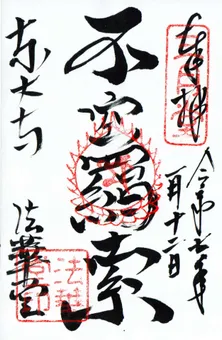 奉拝
令和七年
一月十二日
不空羂索
東大寺
法華堂